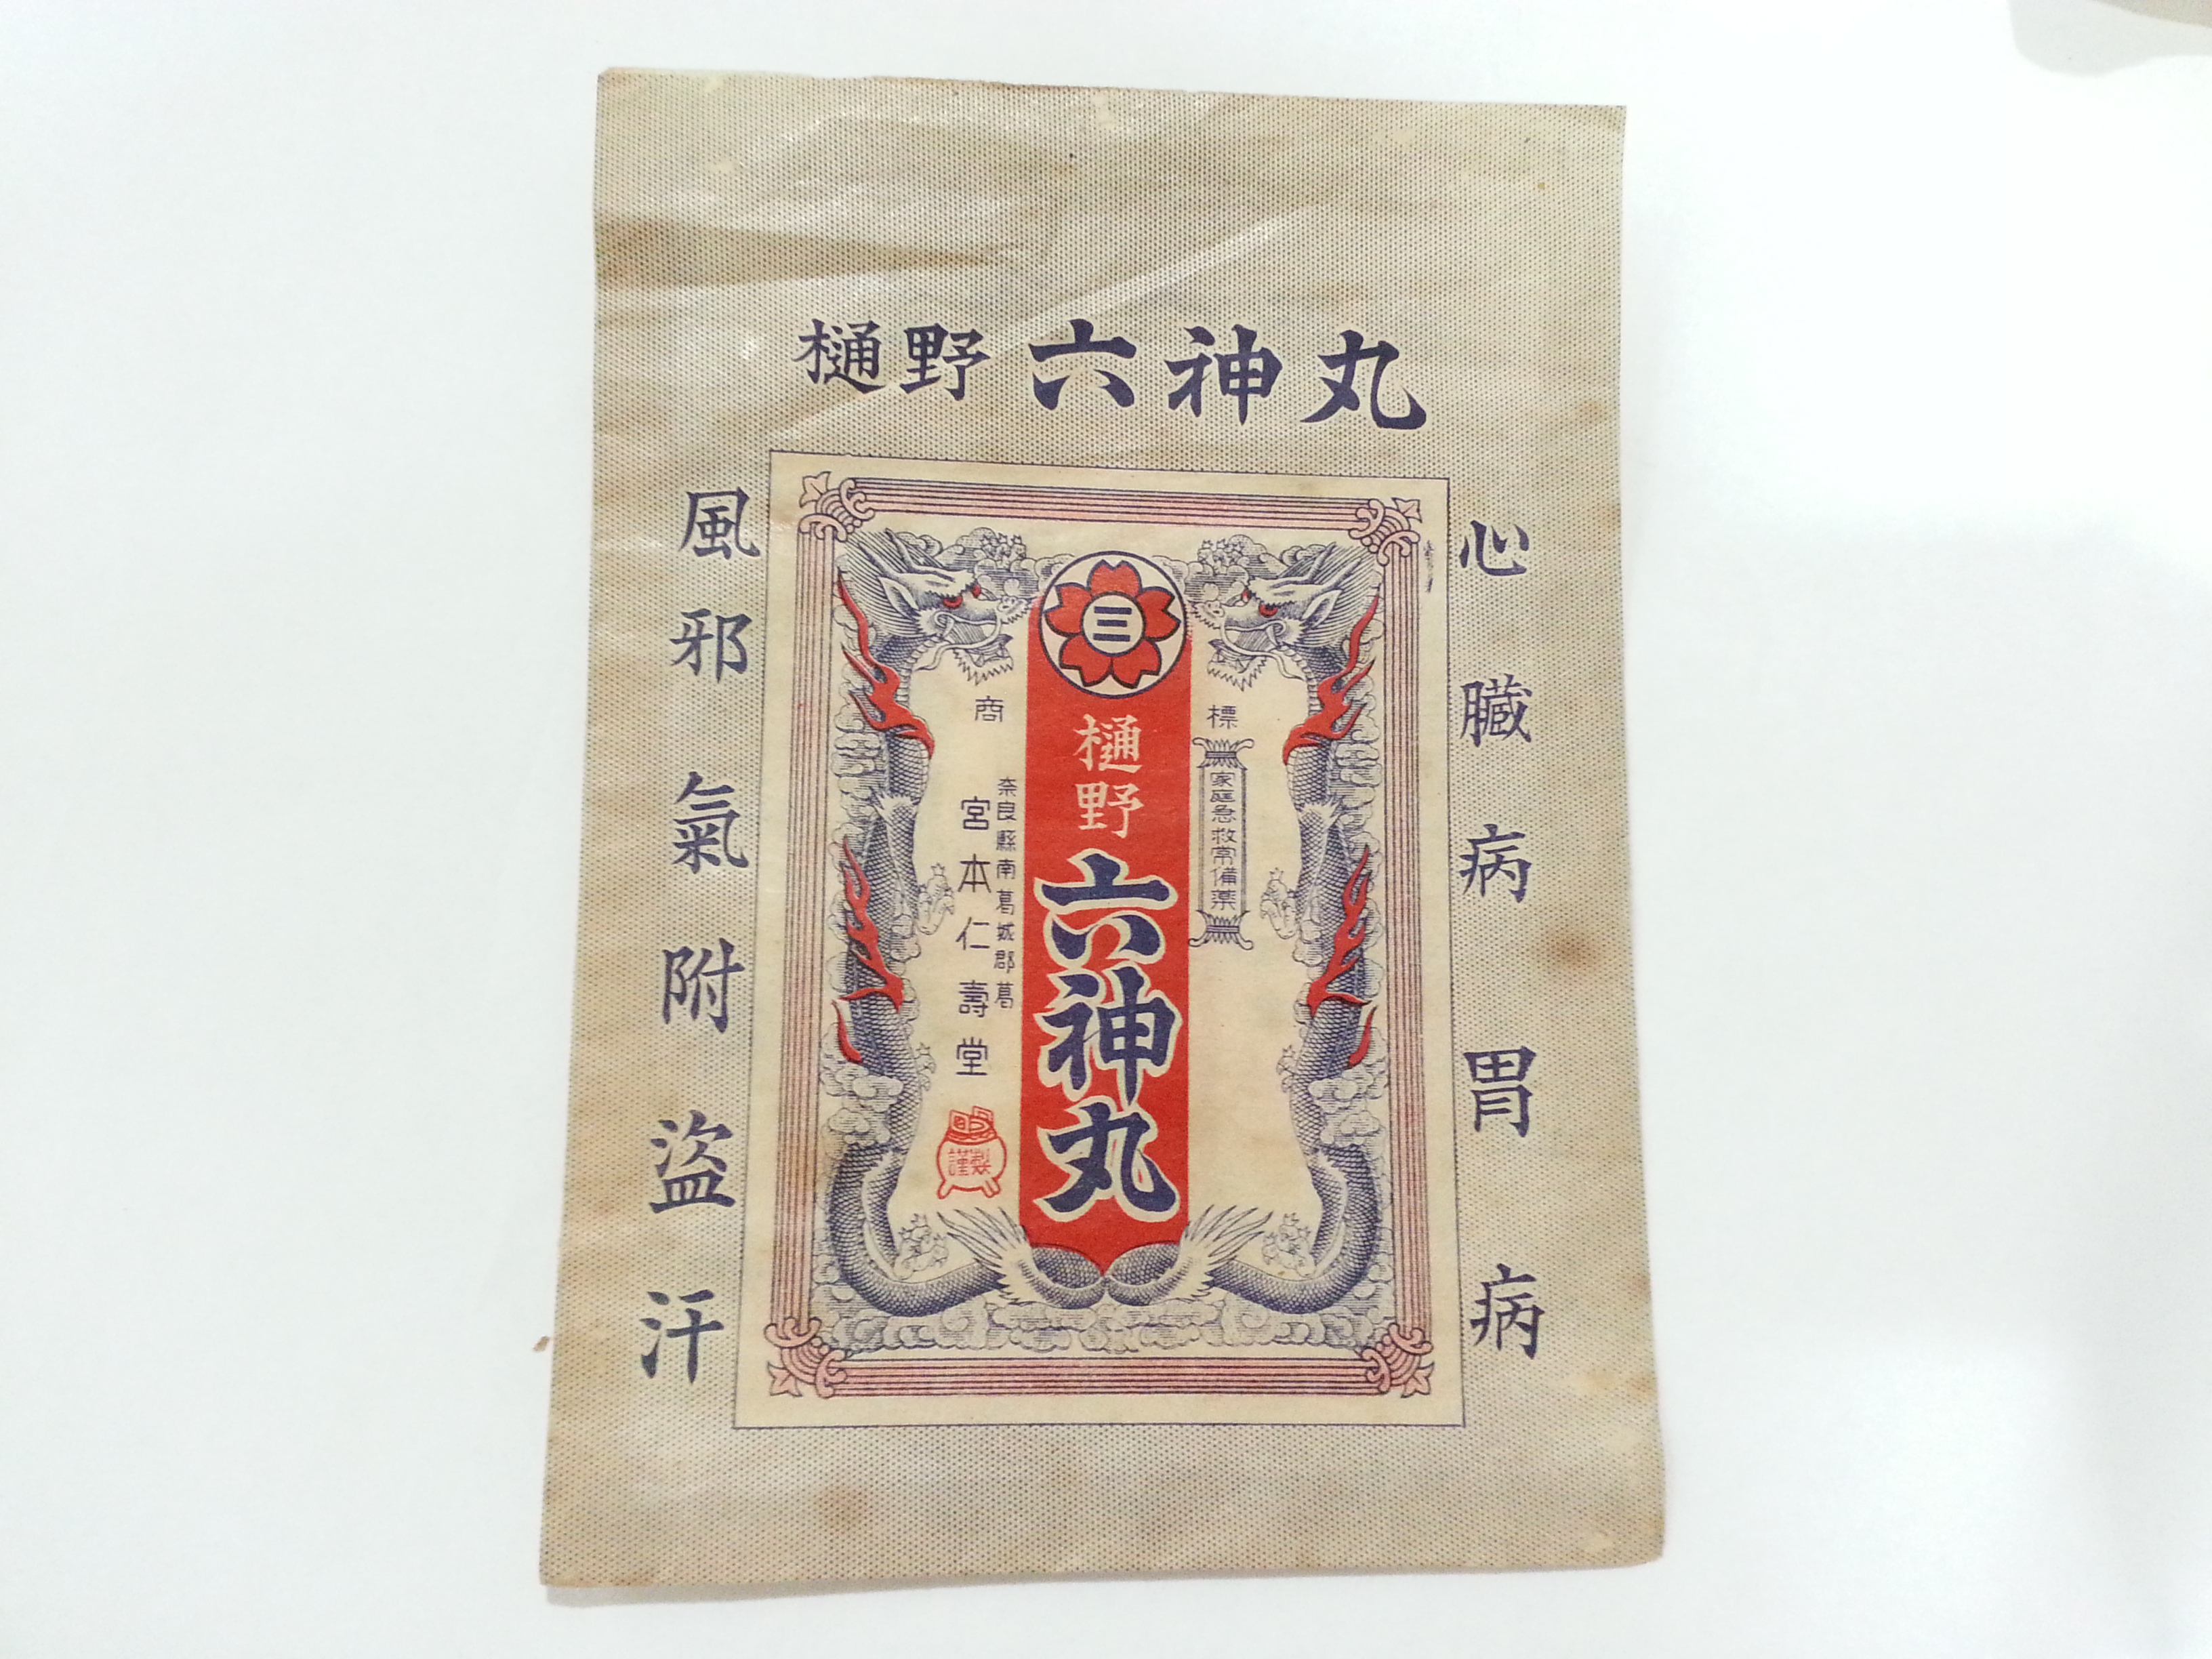 樋野 六神丸
心臓病 胃病
風邪氣附盜汗
商標
三
樋野六神丸
家庭急救常備薬
奈良縣南葛城郡葛
宮本仁壽堂
謹製